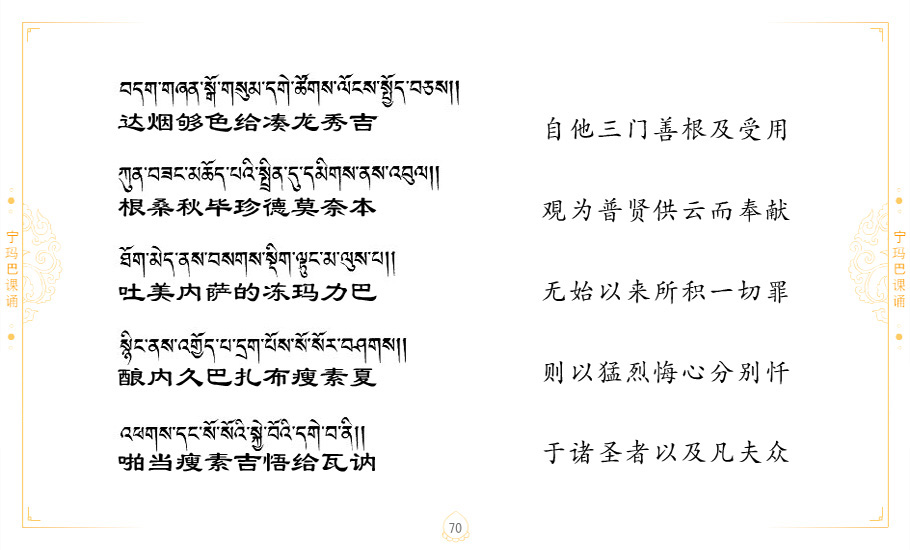 བདག་གཞན་སྒོ་གསུམ་དགེ་ཚོགས་ལོངས་སྤྱོད་བཅས།།
达烟够色给凑龙秀吉
自他三门善根及受用
ཀུན་བཟང་མཆོད་པའི་སྤྲིན་དུ་དམིགས་ནས་འབུལ།།
根桑秋毕珍德莫奈本
观为普贤供云而奉献
ཐོག་མེད་ནས་བསགས་སྡིག་ལྟུང་མ་ལུས་པ།།
吐美内萨的冻玛力巴
无始以来所积一切罪
སྙིང་ནས་འགྱོད་པ་དྲག་པོས་སོ་སོར་བཤགས།།
酿内久巴扎布瘦素夏
则以猛烈悔心分别忏
འཕགས་དང་སོ་སོའི་སྐྱེ་བོའི་དགེ་བ་ནི།།
啪当瘦素吉悟给瓦讷
于诸圣者以及凡夫众
宁玛巴课诵
宁玛巴课诵
70